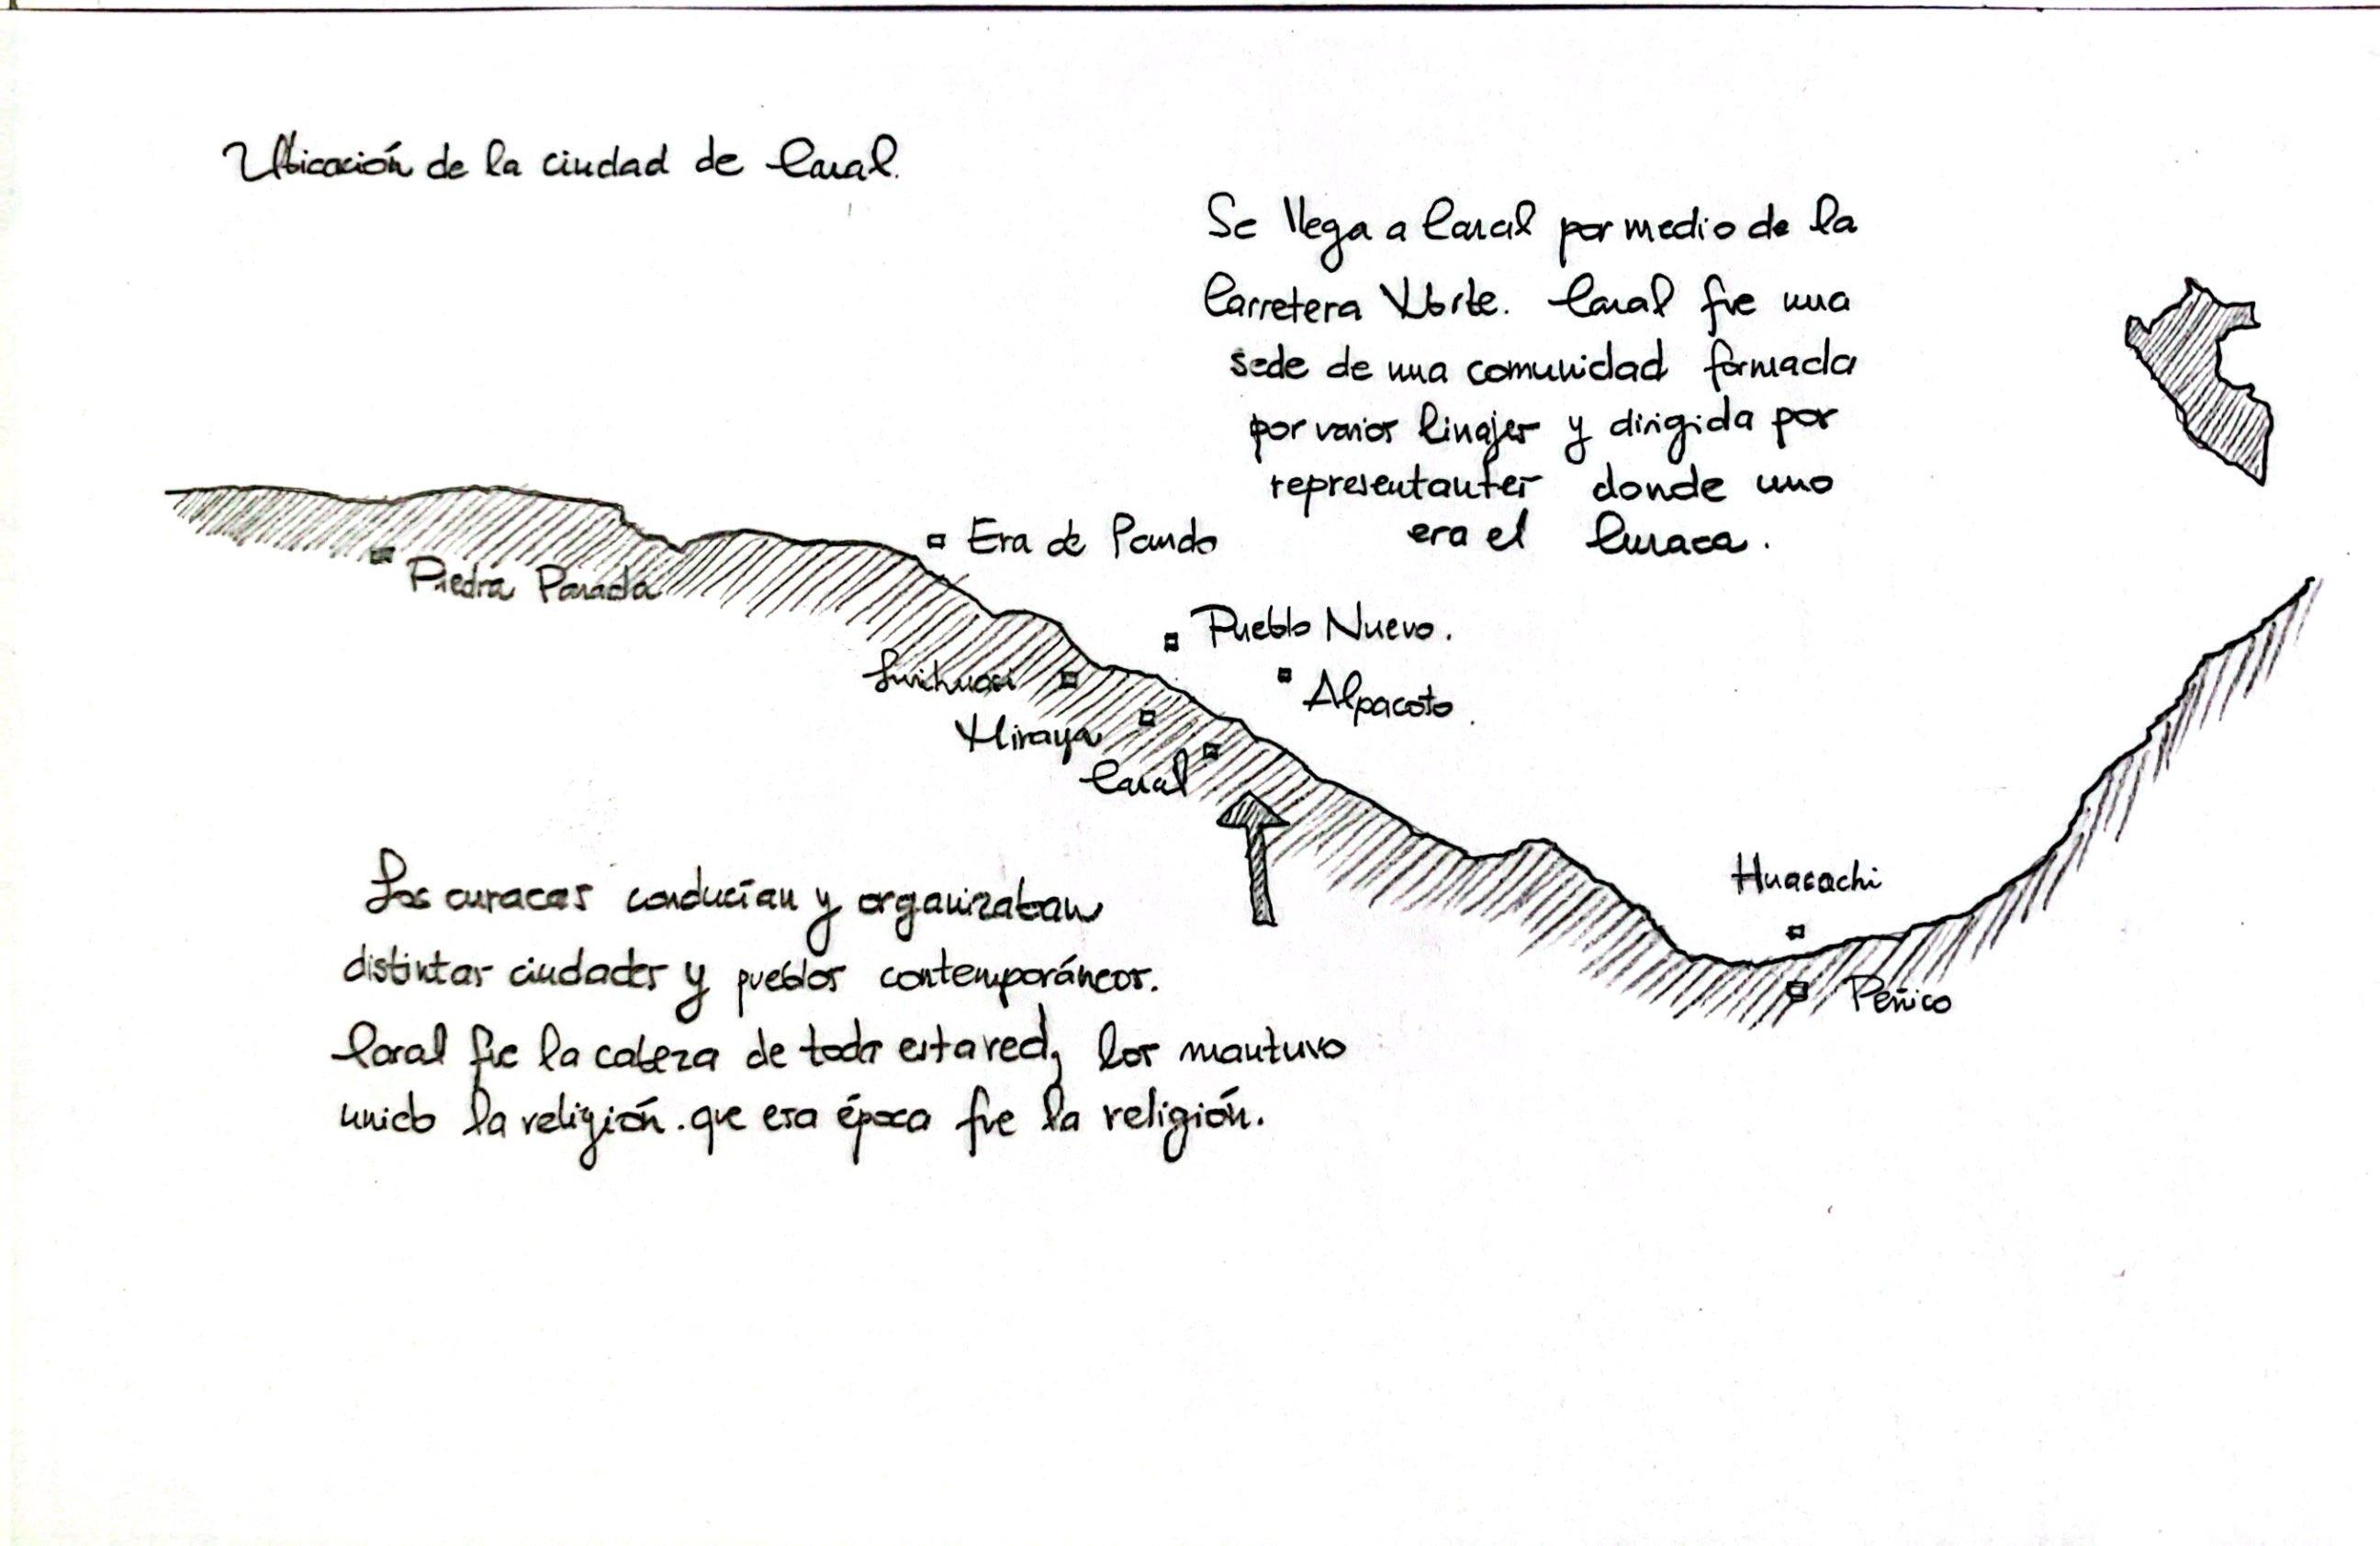 Ubicación de la ciudad de Caral.
Se llega a Caral por medio de la
Carretera Norte. Caral fue una
sede de una comunidad formada
por varios linajes y dirigida por
representantes donde uno
era el Curaca.
Era de Pando
Piedra Parada
Pueblo Nuevo.
Alpacoto.
Lurihuasi
Miraya
Caral
Huacachi
Peñico
Los curacas conducían y organizaban
distintas ciudades y pueblos contemporáneos.
Caral fue la cabeza de toda esta red, los mantuvo
unido la religión. que esa época fue la religión.